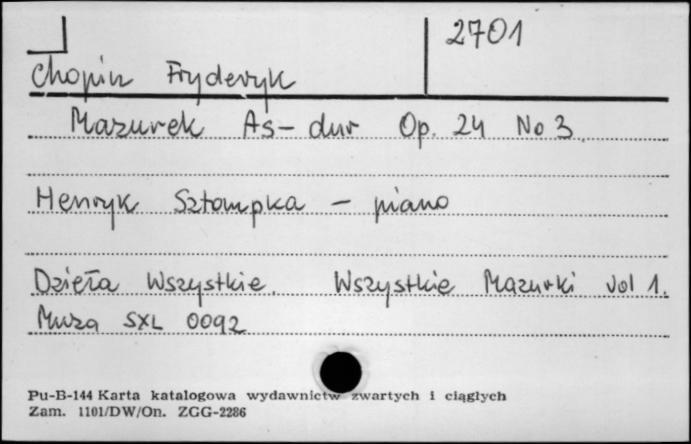 2701
Chopin Fryderyk
Mazurek As-dur Op. 24 No 3
Henryk Sztompka - piano
Dzieła Wszystkie. Wszystkie Mazurki vol 1.
Muza SXL 0092
Pu-B-144 Karta katalogowa wydawnictw zwartych i ciągłych
Zam. 1101/DW/On. ZGG-2286